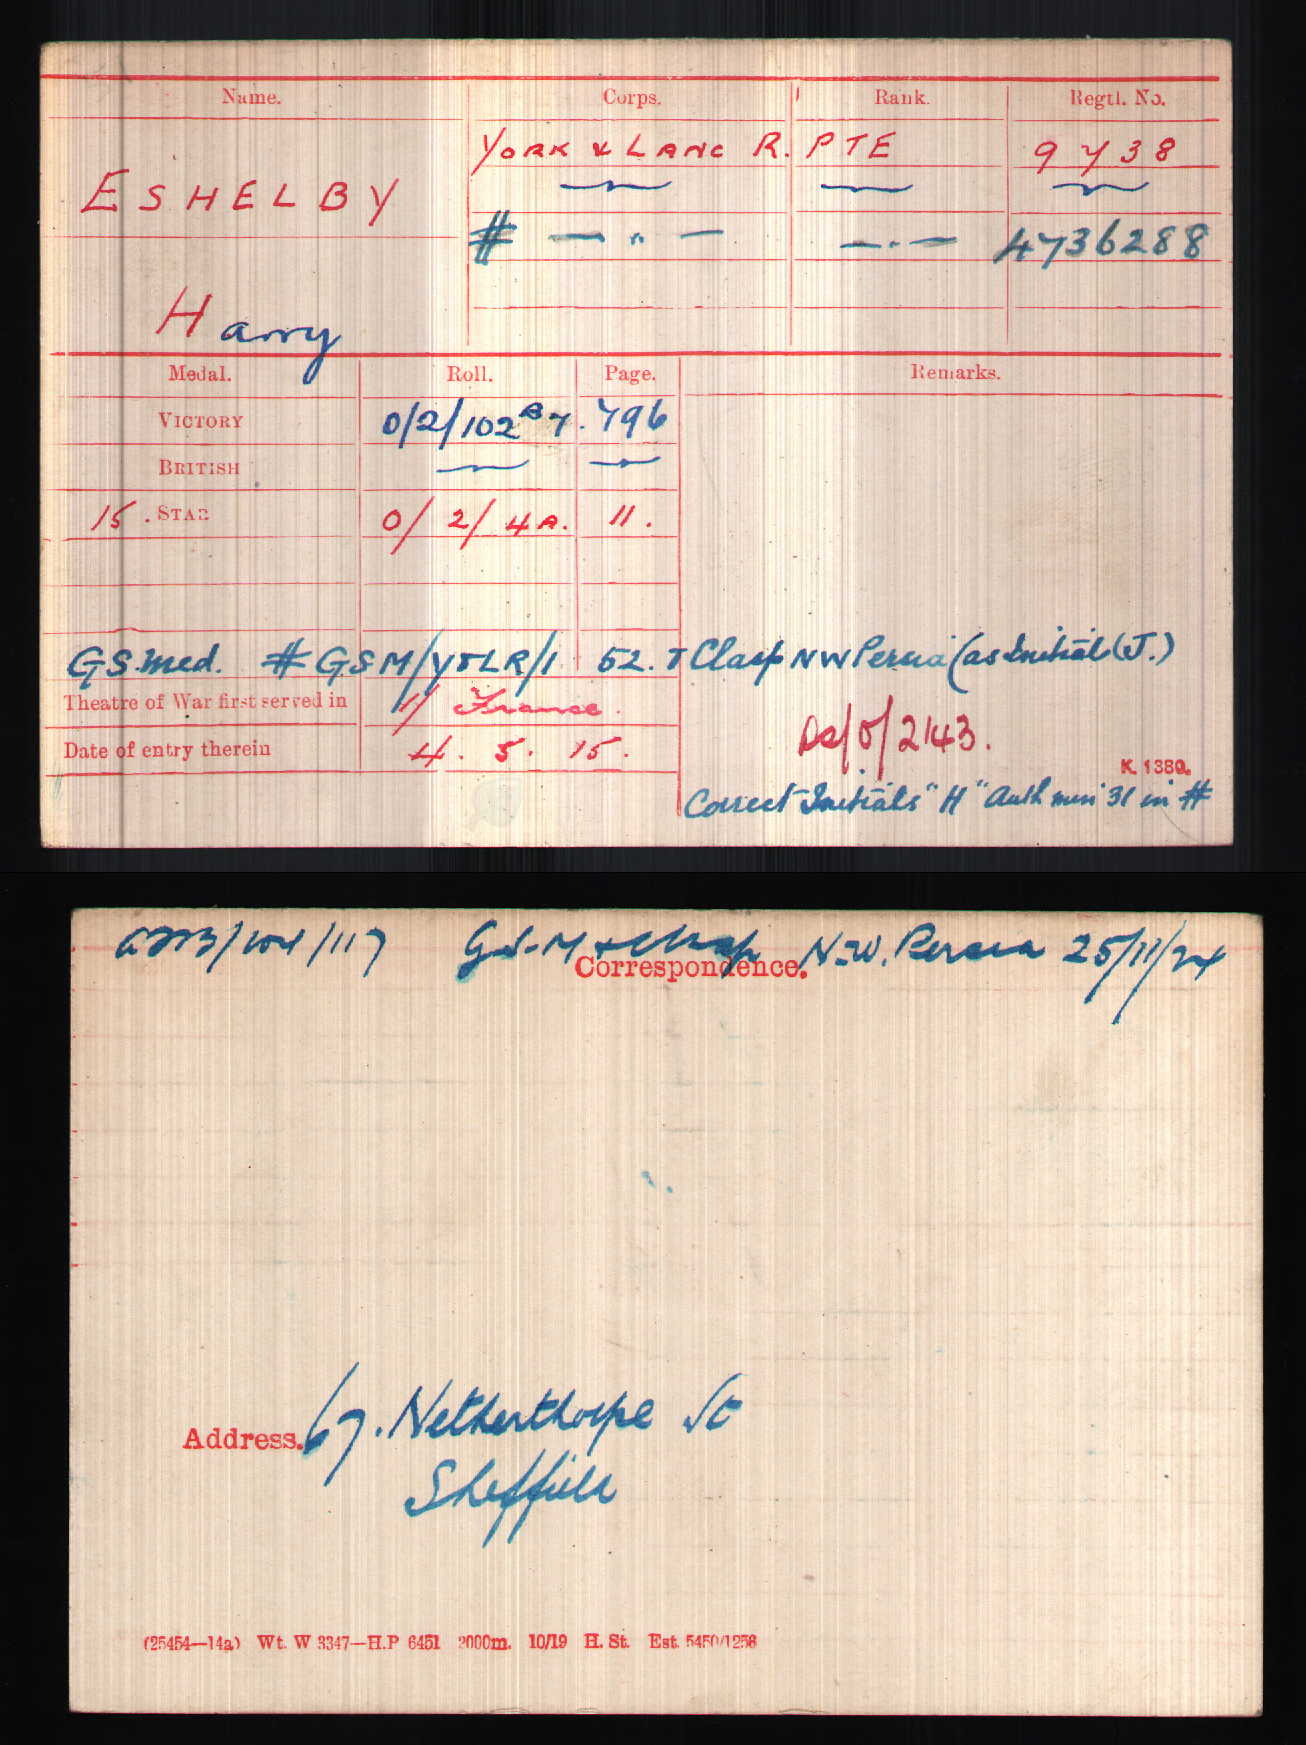 Name. Corps. Rank. Regtl. No.
YORK & LANC R. PTE 9738
ESHELBY
# — " — — . — 4736288
Harry
Medal. Roll. Page. Remarks.
VICTORY 0/2/102 B 7. 796
BRITISH
15. STAR 0/2/4A. 11.
GS. Med. # GSM/Y&LR/1 52. Clasp NW Persia (as Initial (J.)
Theatre of War first served in 1/ France.
DS/0/2143.
Date of entry therein 4. 5. 15.
K. 1380.
Correct Initials "H" Auth min 31 in #
/104/117 G.S.M & clasp N.W. Persia 25/11/24
Correspondence.
Address. 67. Netherthorpe St
Sheffield
(25454—14a) Wt. W 3347—H.P 6451 2000m. 10/19 H. St. Est. 5450/1256